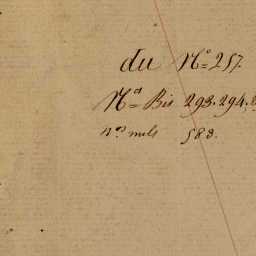 du N° 257.
N° Bis 293. 294.
n°s mils 583.